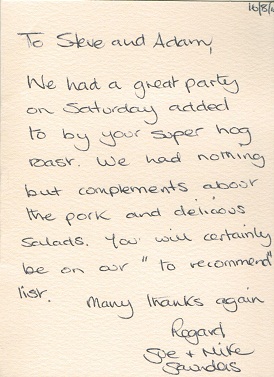 16/8/
To Steve and Adam,
We had a great party
on Saturday added
to by your super hog
roast. We had nothing
but complements about
the pork and delicious
salads. You will certainly
be on our " to recommend"
list. Many thanks again
Regard
Sue + Mike
Saunders